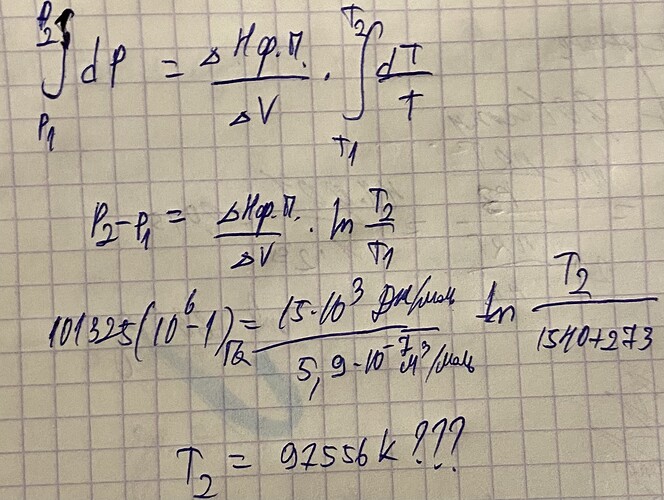 ∫_{P₁}^{P₂} dP = ΔHф.п. / ΔV · ∫_{T₁}^{T₂} dT / T
P₂-P₁ = ΔHф.п. / ΔV · ln T₂ / T₁
101325(10⁶-1) Па = 15·10³ Дж/моль / 5,9·10⁻⁷ м³/моль ln T₂ / 1540+273
T₂ = 97556 K???